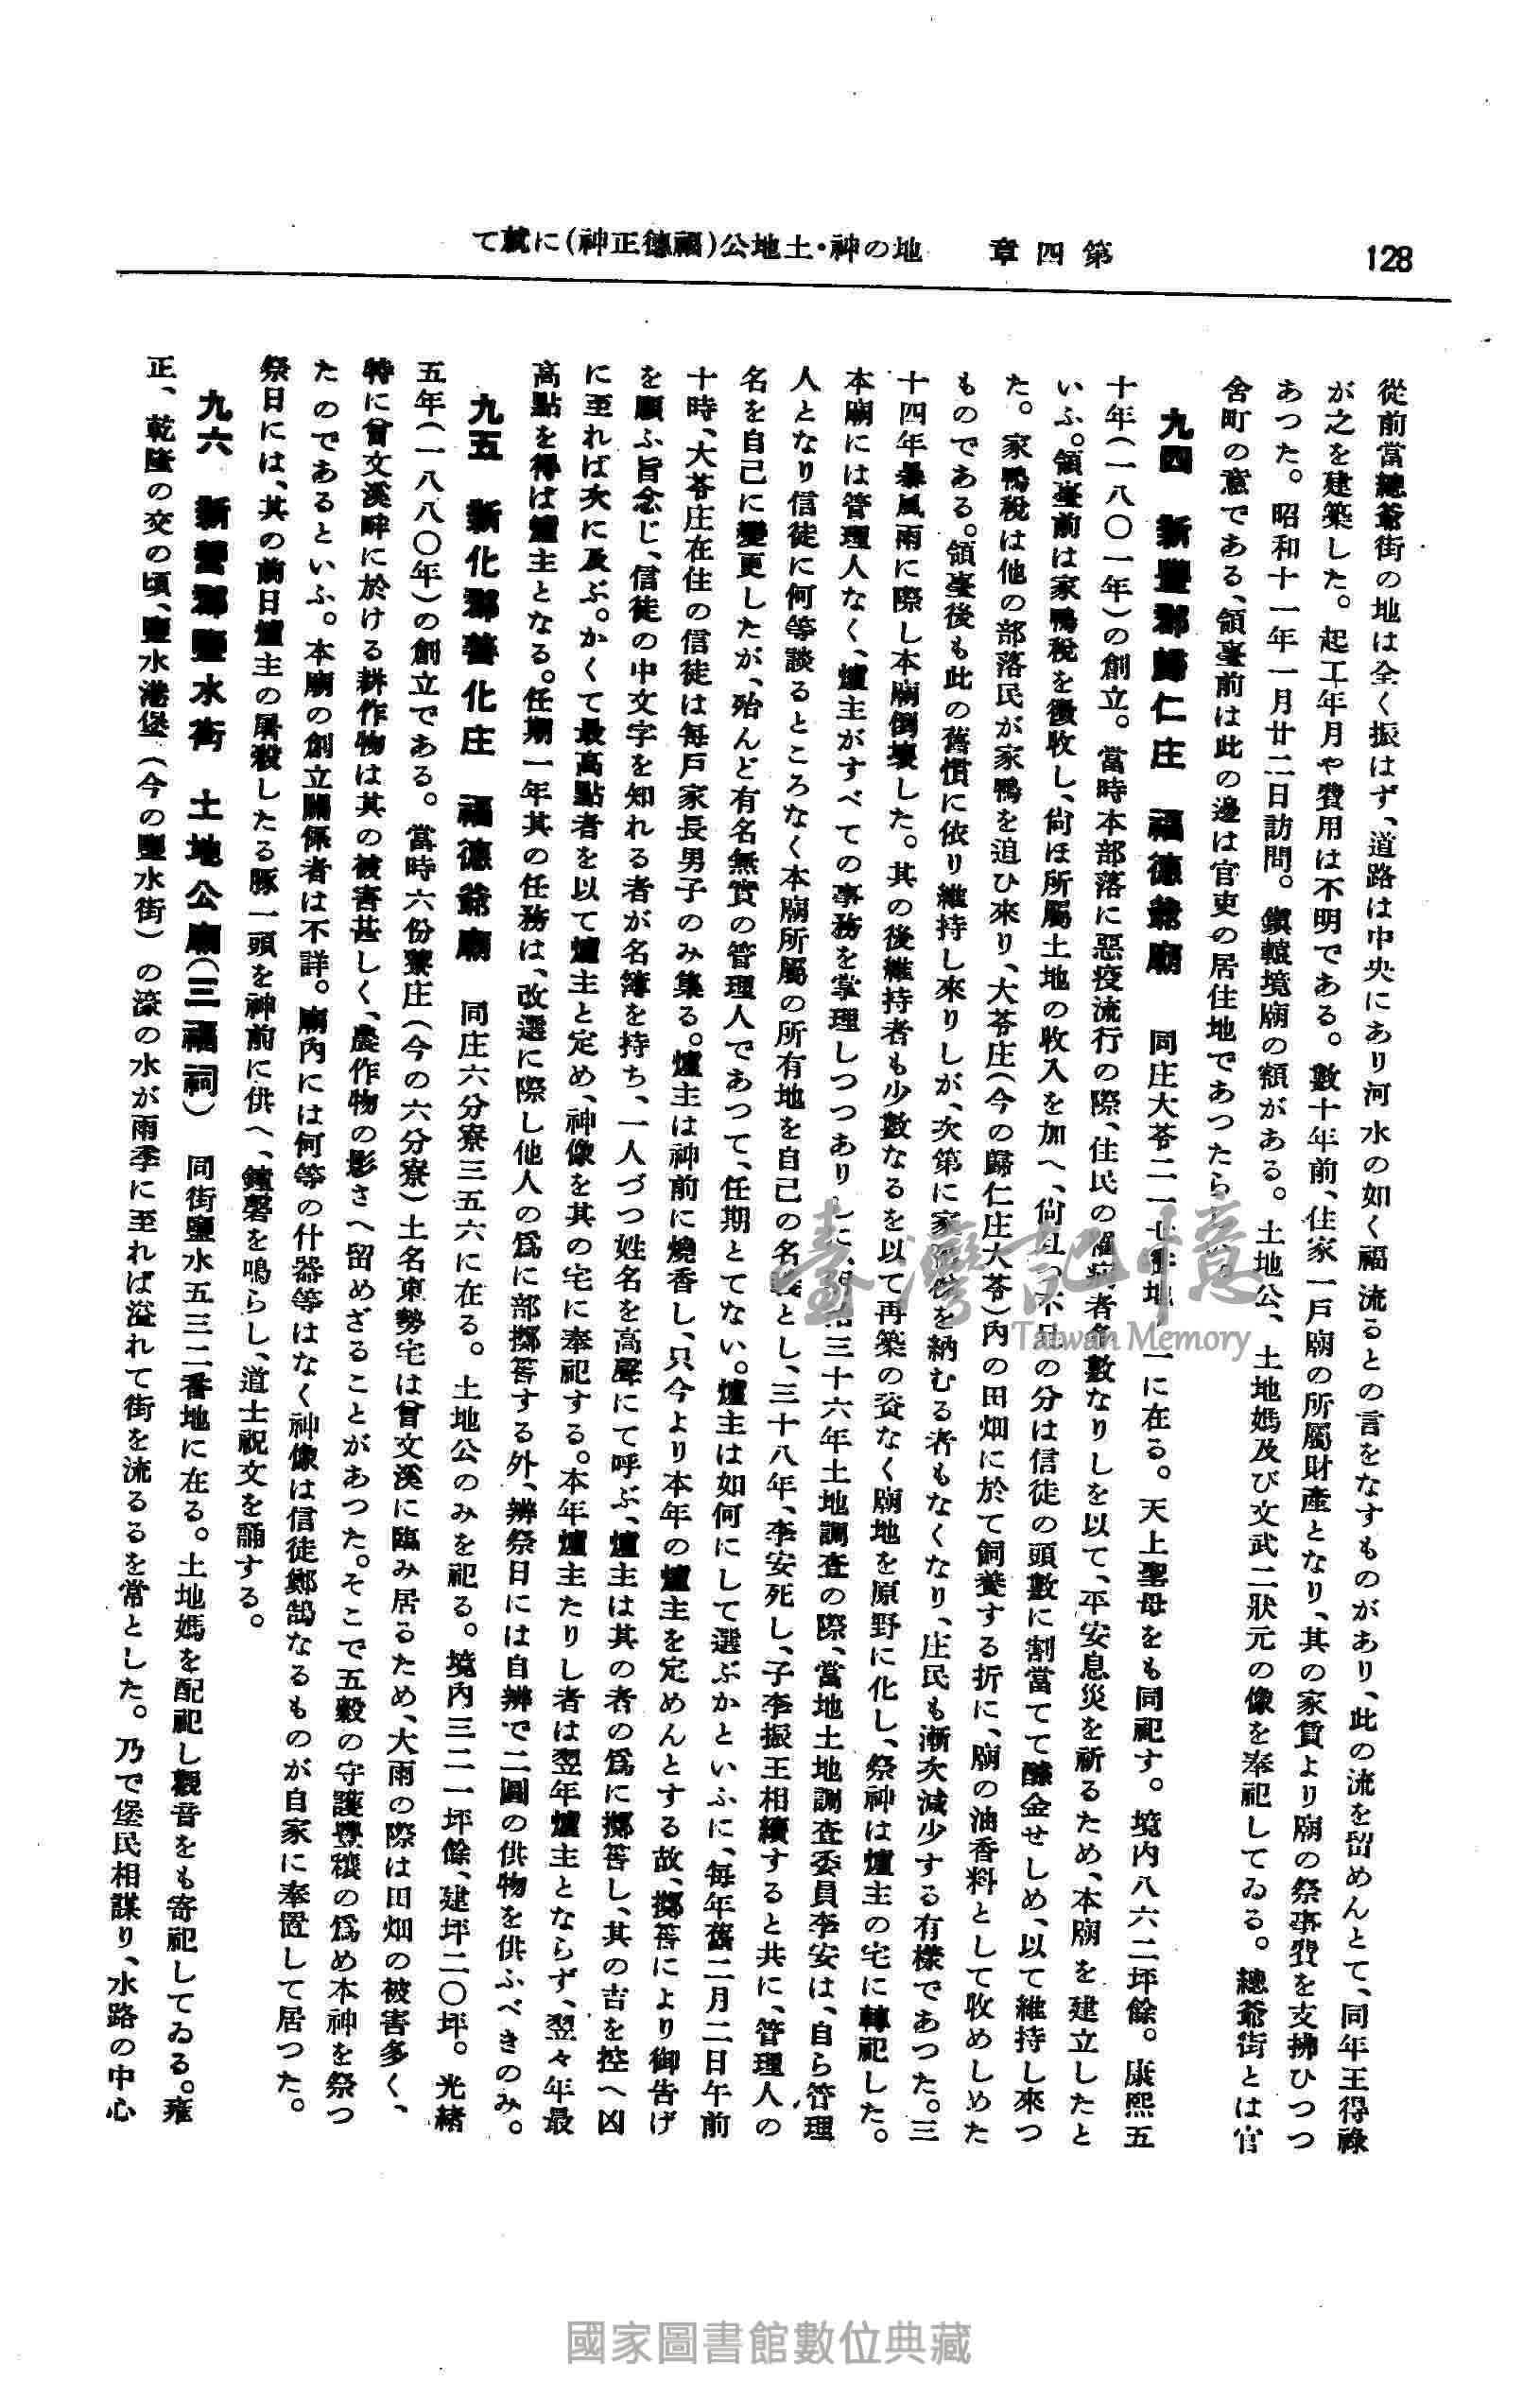 128
第四章 地の神・土地公(福德正神)に就て
從前當總爺街の地は全く振はず、道路は中央にあり河水の如く福流るとの言をなすものがあり、此の流を留めんとて、同年王得祿
が之を建築した。起工年月や費用は不明である。數十年前、住家一戸廟の所屬財產となり、其の家賃より廟の祭事費を支拂ひつつ
あつた。昭和十一年一月廿二日訪問。鎭轅境廟の額がある。土地公、土地媽及び文武二狀元の像を奉祀してゐる。總爺街とは官
舍町の意である、領臺前は此の邊は官吏の居住地であつたら
九四 新豐郡歸仁庄 福德爺廟 同庄大苓二一七番地ノ一に在る。天上聖母をも同祀す。境內八六二坪餘。康熙五
十年(一八〇一年)の創立。當時本部落に惡疫流行の際、住民の罹病者多數なりしを以て、平安息災を祈るため、本廟を建立したと
いふ。領臺前は家鴨稅を徵收し、尙ほ所屬土地の收入を加へ、尙且つ不足の分は信徒の頭數に割當てて醵金せしめ、以て維持し來つ
た。家鴨稅は他の部落民が家鴨を追ひ來り、大苓庄(今の歸仁庄大苓)內の田畑に於て飼養する折に、廟の油香料として收めしめた
ものである。領臺後も此の舊慣に依り維持し來りしが、次第に家鴨稅を納むる者もなくなり、庄民も漸次減少する有樣であつた。三
十四年暴風雨に際し本廟倒壞した。其の後維持者も少數なるを以て再築の資なく廟地を原野に化し、祭神は爐主の宅に轉祀した。
本廟には管理人なく、爐主がすべての事務を掌理しつつありしに、明治三十六年土地調査の際、當地土地調查委員李安は、自ら管理
人となり信徒に何等談るところなく本廟所屬の所有地を自己の名義とし、三十八年、李安死し、子李振王相續すると共に、管理人の
名を自己に變更したが、殆んど有名無實の管理人であつて、任期とてない。爐主は如何にして選ぶかといふに、每年舊二月二日午前
十時、大苓庄在住の信徒は每戸家長男子のみ集る。爐主は神前に燒香し、只今より本年の爐主を定めんとする故、擲筶により御告げ
を願ふ旨念じ、信徒の中文字を知れる者が名簿を持ち、一人づつ姓名を高聲にて呼ぶ、爐主は其の者の爲に擲筶し、其の吉を控へ凶
に至れば次に及ぶ。かくて最高點者を以て爐主と定め、神像を其の宅に奉祀する。本年爐主たりし者は翌年爐主とならず、翌々年最
高點を得ば爐主となる。任期一年其の任務は、改選に際し他人の爲に部擲筶する外、辨祭日には自辨で二圓の供物を供ふべきのみ。
九五 新化郡善化庄 福德爺廟 同庄六分寮三五六に在る。土地公のみを祀る。境內三二一坪餘、建坪二〇坪。光緖
五年(一八八〇年)の創立である。當時六份寮庄(今の六分寮)土名東勢宅は曾文溪に臨み居るため、大雨の際は田畑の被害多く、
特に曾文溪畔に於ける耕作物は其の被害甚しく、農作物の影さへ留めざることがあつた。そこで五穀の守護豐穰の爲め本神を祭つ
たのであるといふ。本廟の創立關係者は不詳。廟內には何等の什器等はなく神像は信徒鄭鵠なるものが自家に奉置して居つた。
祭日には、其の前日爐主の屠殺したる豚一頭を神前に供へ、鐘磬を鳴らし、道士祝文を誦する。
九六 新營郡鹽水街 土地公廟(三福祠) 同街鹽水五三二番地に在る。土地媽を配祀し觀音をも寄祀してゐる。雍
正、乾隆の交の頃、鹽水港堡(今の鹽水街)の濠の水が雨季に至れば溢れて街を流るるを常とした。乃で堡民相謀り、水路の中心
臺灣記憶
Taiwan Memory
國家圖書館數位典藏